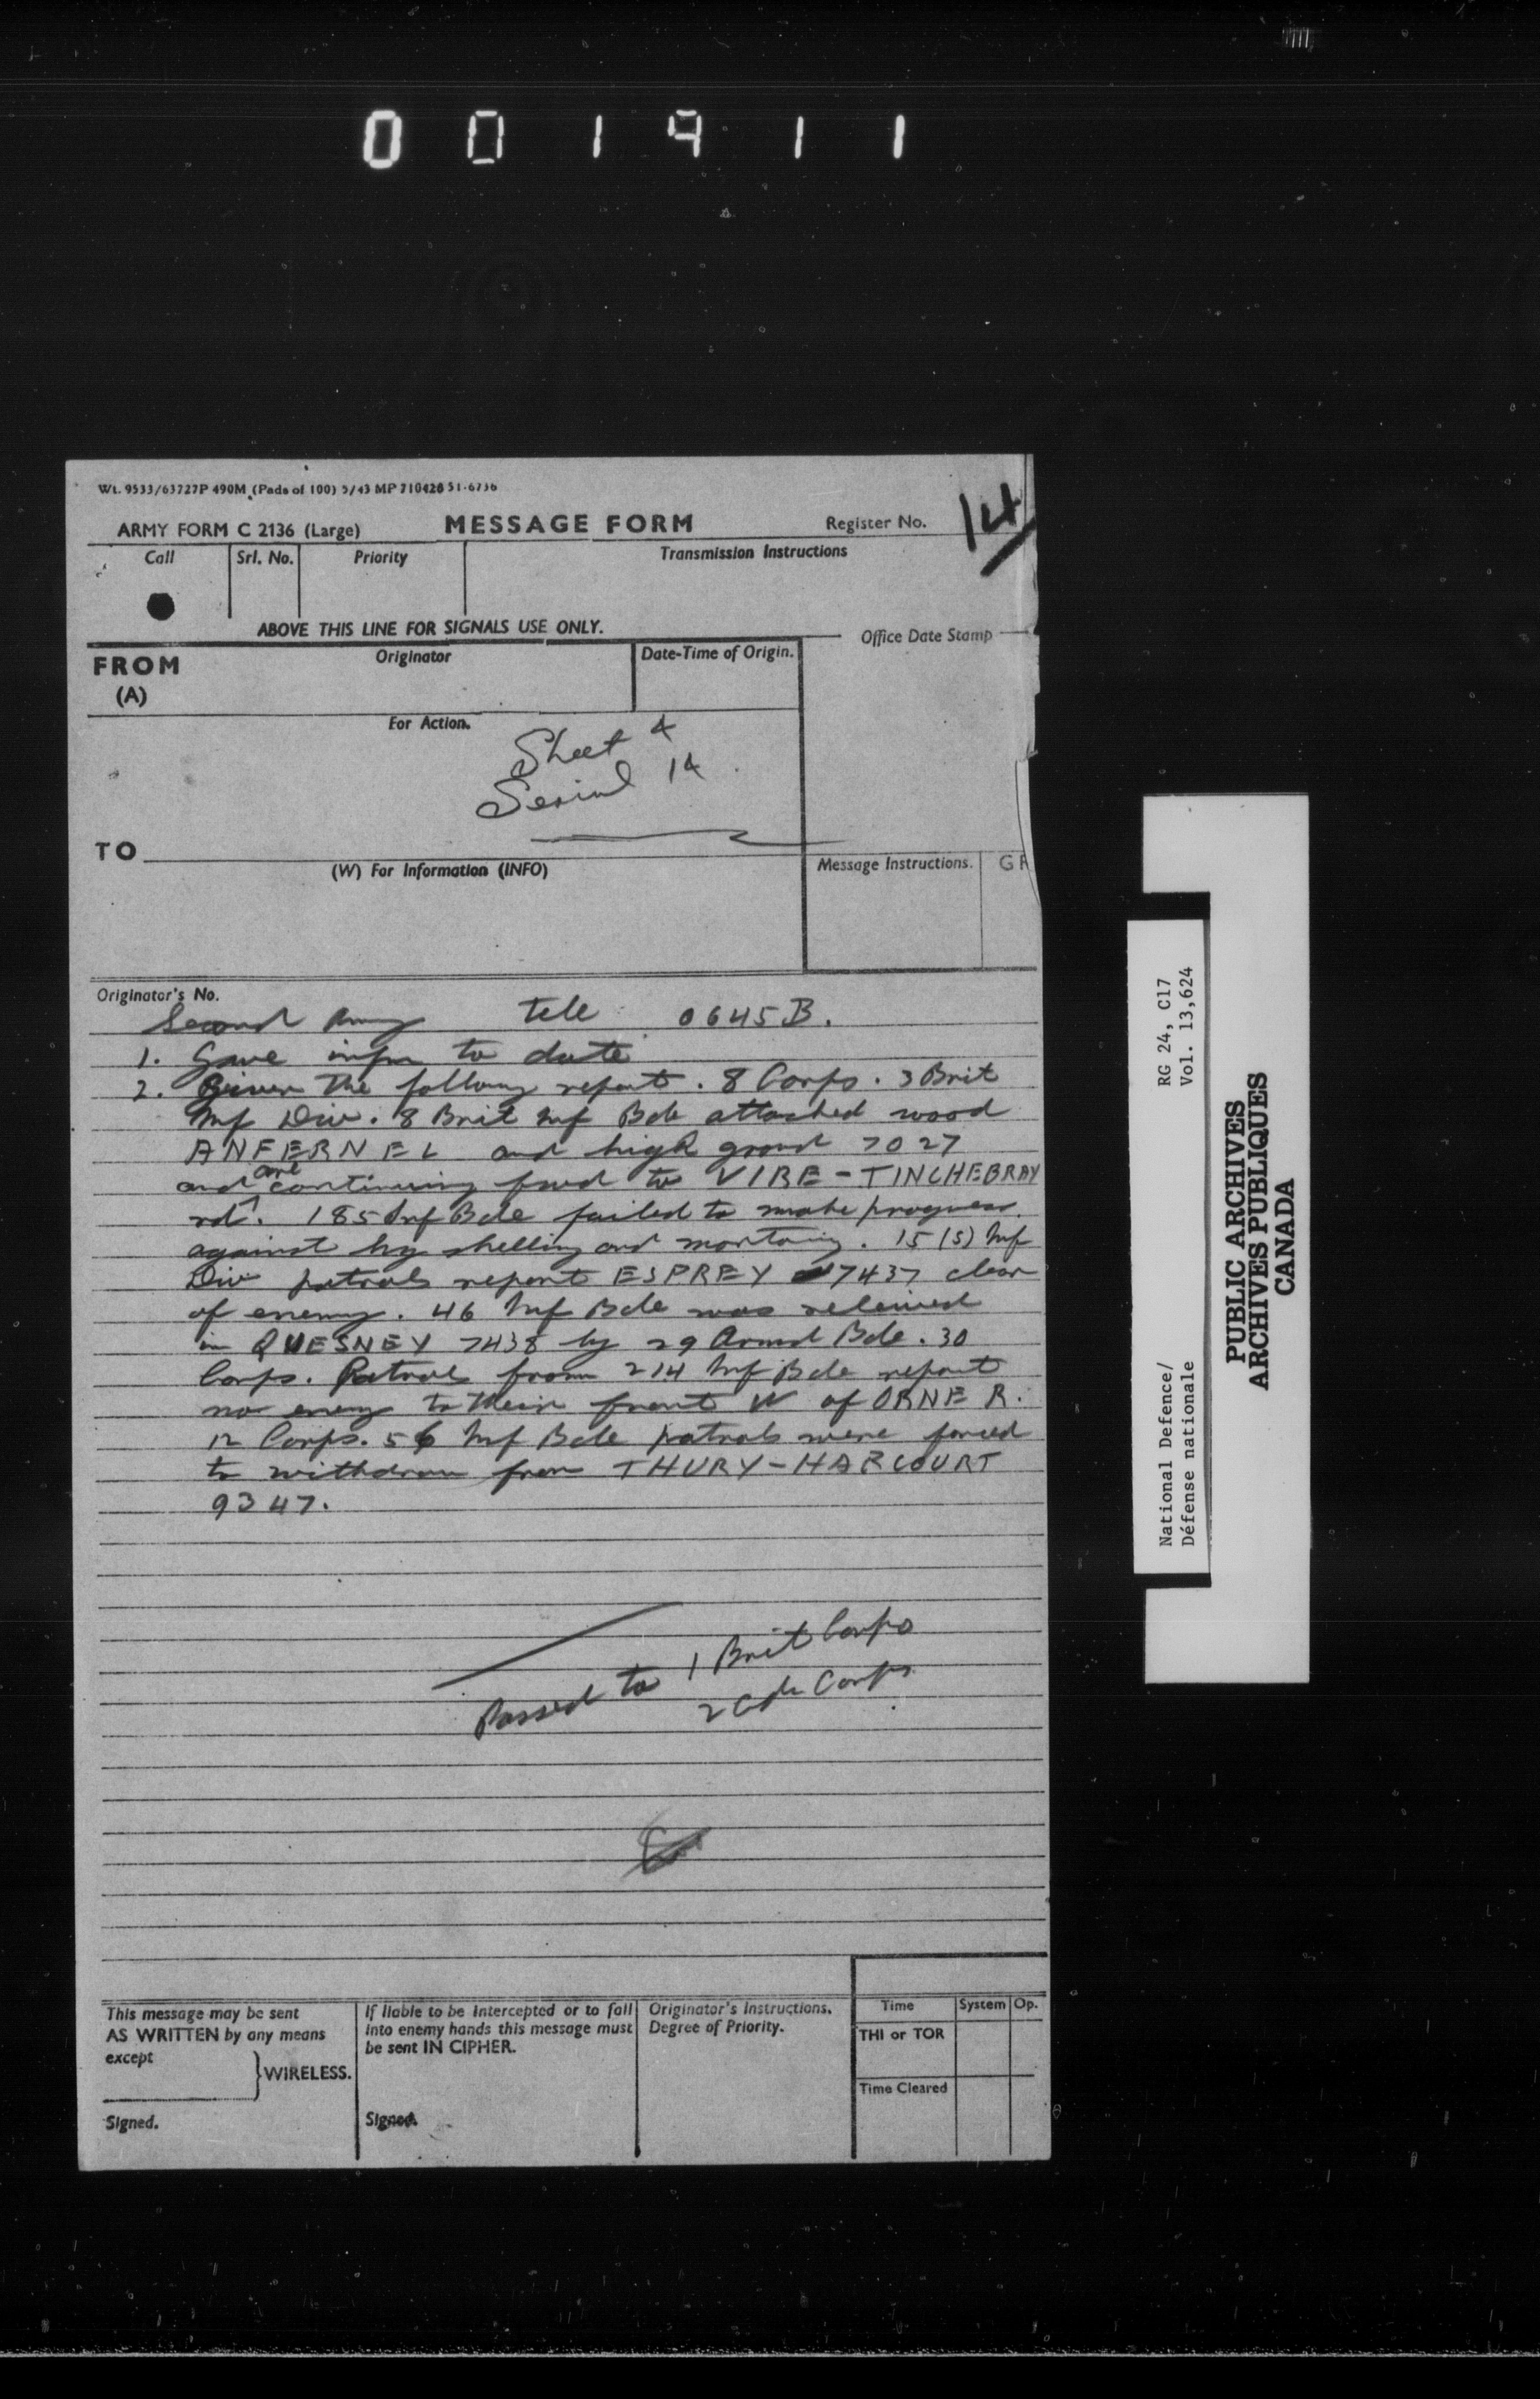 001911
Wt. 9533/63727P 490M (Pads of 100) 5/43 MP 710428 51-6736
ARMY FORM C 2136 (Large) MESSAGE FORM Register No. 14
Call Srl. No. Priority Transmission Instructions
ABOVE THIS LINE FOR SIGNALS USE ONLY.
Office Date Stamp
FROM (A) Originator Date-Time of Origin.
For Action.
Sheet 4
Serial 14
TO
(W) For Information (INFO) Message Instructions. GR
Originator's No.
Second Army tele 0645B.
1. Gave infm to date
2. Given the following report. 8 Corps. 3 Brit
Inf Div. 8 Brit Inf Bde attacked wood
ANFERNEL and high ground 7027
and are continuing fwd to VIRE-TINCHEBRAY
rd. 185 Inf Bde failed to make progress
against hy shelling and mortaring. 15 (S) Inf
Div patrols report ESPREY 7437 clear
of enemy. 46 Inf Bde was relieved
in QUESNEY 7438 by 29 Armd Bde. 30
Corps. Patrols from 214 Inf Bde report
no enemy to their front W of ORNE R.
12 Corps. 56 Inf Bde patrols were forced
to withdraw from THURY-HARCOURT
9347.
Passed to 1 Brit Corps
2 Cdn Corps
This message may be sent AS WRITTEN by any means except WIRELESS.
Signed.
If liable to be intercepted or to fall into enemy hands this message must be sent IN CIPHER.
Signed.
Originator's Instructions. Degree of Priority.
Time System Op.
THI or TOR
Time Cleared
National Defence/ RG 24, C17
Défense nationale Vol. 13,624
PUBLIC ARCHIVES
ARCHIVES PUBLIQUES
CANADA